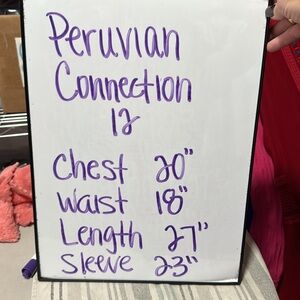 Peruvian
Connection
12
Chest 20"
Waist 18"
Length 27"
Sleeve 23"